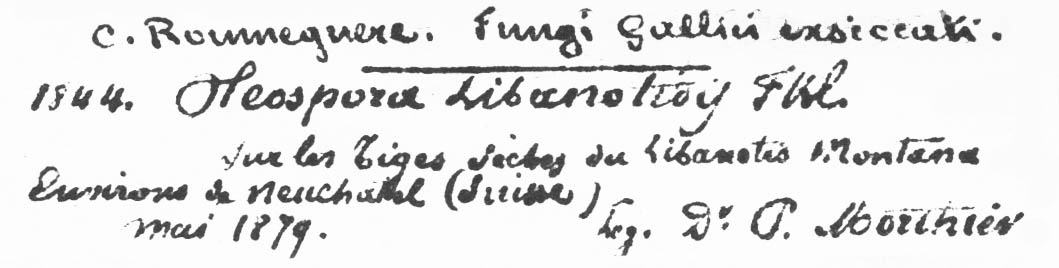 C. Roumeguere. Fungi Gallici exsiccati.
1844. Pleospora Libanotidis Fkl.
sur les Tiges sèches du Libanotis Montana
Environs de Neuchatel (Suisse)
mai 1879.
Leg. Dr P. Morthier